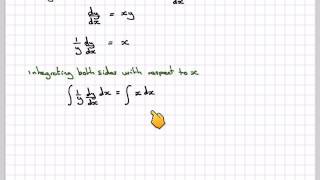 dx
dy/dx = xy
1/y dy/dx = x
integrating both sides with respect to x
∫ 1/y dy/dx dx = ∫ x dx